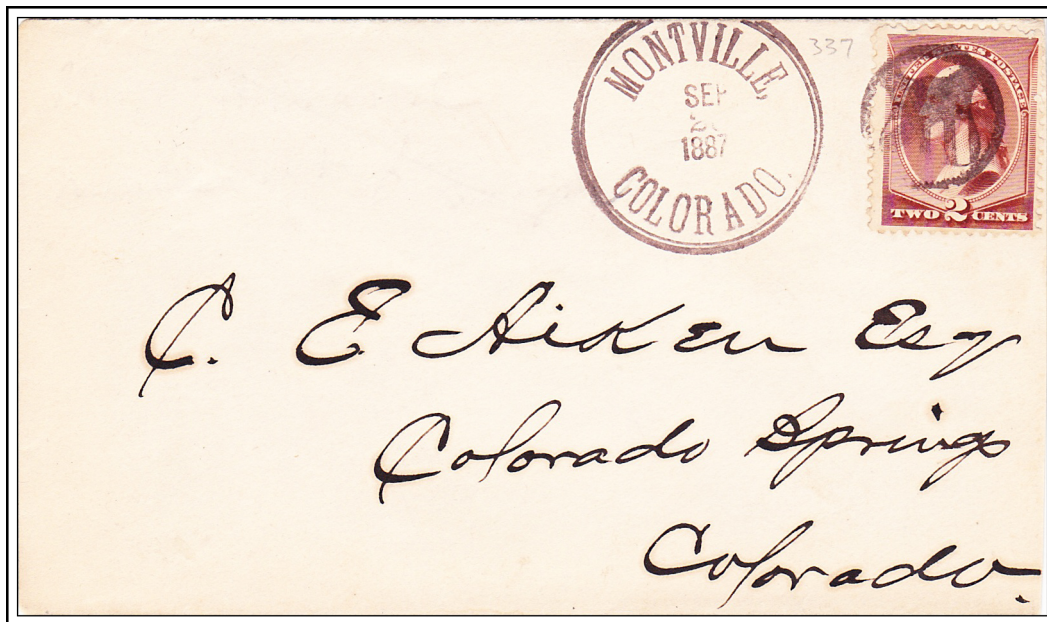 MONTVILLE,
SEP
1887
COLORADO.
337
UNITED STATES POSTAGE
TWO 2 CENTS
C. E. Aiken Esq
Colorado Springs
Colorado.